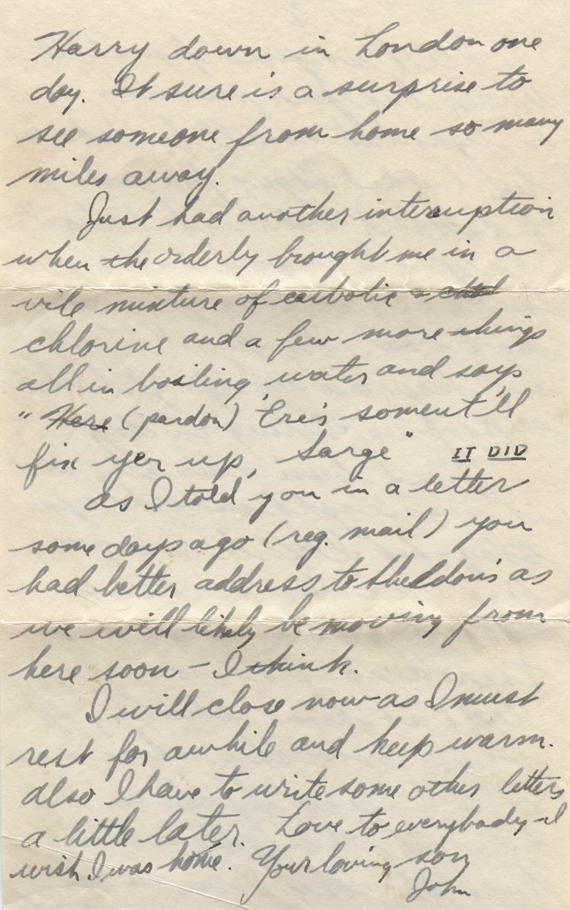 Harry down in London one
day. It sure is a surprise to
see someone from home so many
miles away.
Just had another interruption
when the orderly brought me in a
vile mixture of carbolic &
chlorine and a few more things
all in boiling water and says
" Here (pardon) 'Ere's soment'll
fix yer up, Sarge" IT DID
as I told you in a letter
some days ago (reg. mail) you
had better address to Sheldon's as
we will likely be moving from
here soon - I think.
I will close now as I must
rest for awhile and keep warm.
also I have to write some other letters
a little later. Love to everybody - I
wish I was home. Your loving son
John